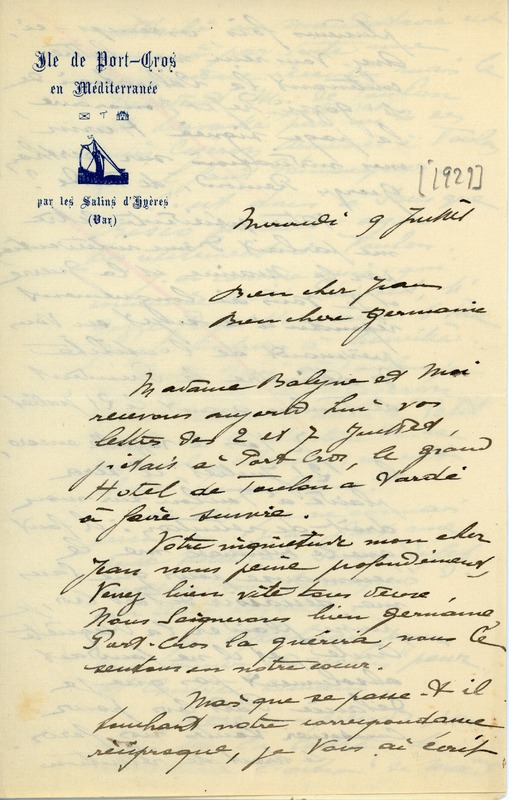 Ile de Port-Cros
en Méditerranée
par les Salins d'Hyères
(Var)
[1929]
Mercredi 9 Juillet
Bien cher Jean
Bien chere Germaine
Madame Balyne et Moi
recevons aujourd hui vos
lettres des 2 et 7 Juillet,
j'étais à Port Cros, le grand
Hotel de Toulon a tardé
à faire suivre.
Votre inquiétude mon cher
Jean nous peine profondément,
Venez bien vite tous deux
Nous Soignerons bien germaine
Port-Cros la guérira, nous le
sentons en notre cœur.
Mais que se passe-t il
touchant notre correspondance
réciproque, je Vous ai écrit